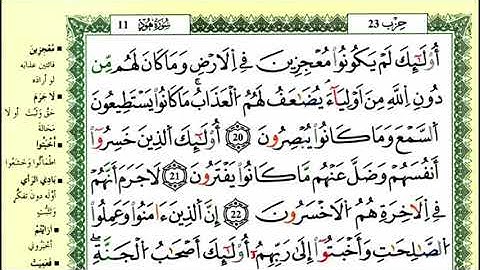 حِزْب 23
سُورَةُ هُود
11
أُوْلَٰٓئِكَ لَمْ يَكُونُواْ مُعْجِزِينَ فِے اِلَارْضِ وَمَا كَانَ لَهُم مِّن
دُونِ اِللَّهِ مِنَ اَوْلِيَآءَ يُضَٰعَفُ لَهُمُ اُلْعَذَابُ مَا كَانُواْ يَسْتَطِيعُونَ
اَلسَّمْعَ وَمَا كَانُواْ يُبْصِرُونَ 20 أُوْلَٰٓئِكَ اَلذِينَ خَسِرُواْ
أَنفُسَهُمْ وَضَلَّ عَنْهُم مَّا كَانُواْ يَفْتَرُونَ 21 لَا جَرَمَ أَنَّهُمْ
فِے اِلَاخِرَةِ هُمُ اُلَاخْسَرُونَ 22 إِنَّ اَلذِينَ ءَامَنُواْ وَعَمِلُواْ
اُلصَّٰلِحَٰتِ وَأَخْبَتُوٓاْ إِلَىٰ رَبِّهِمُۥٓ أُوْلَٰٓئِكَ أَصْحَٰبُ اُلْجَنَّةِ
مُعْجِزِينَ
فائتين عذابه
لو أراده
لَا جَرَمَ
حقّ وثبت أو لا
محالة
أَخْبَتُوا
اطمأنوا وخشعوا
بَادِيَ الرَّأْيِ
أوّله دون تفكّر
وتثبّت
أَرَآيْتُمْ
أخبروني
فَعَمِيَتْ